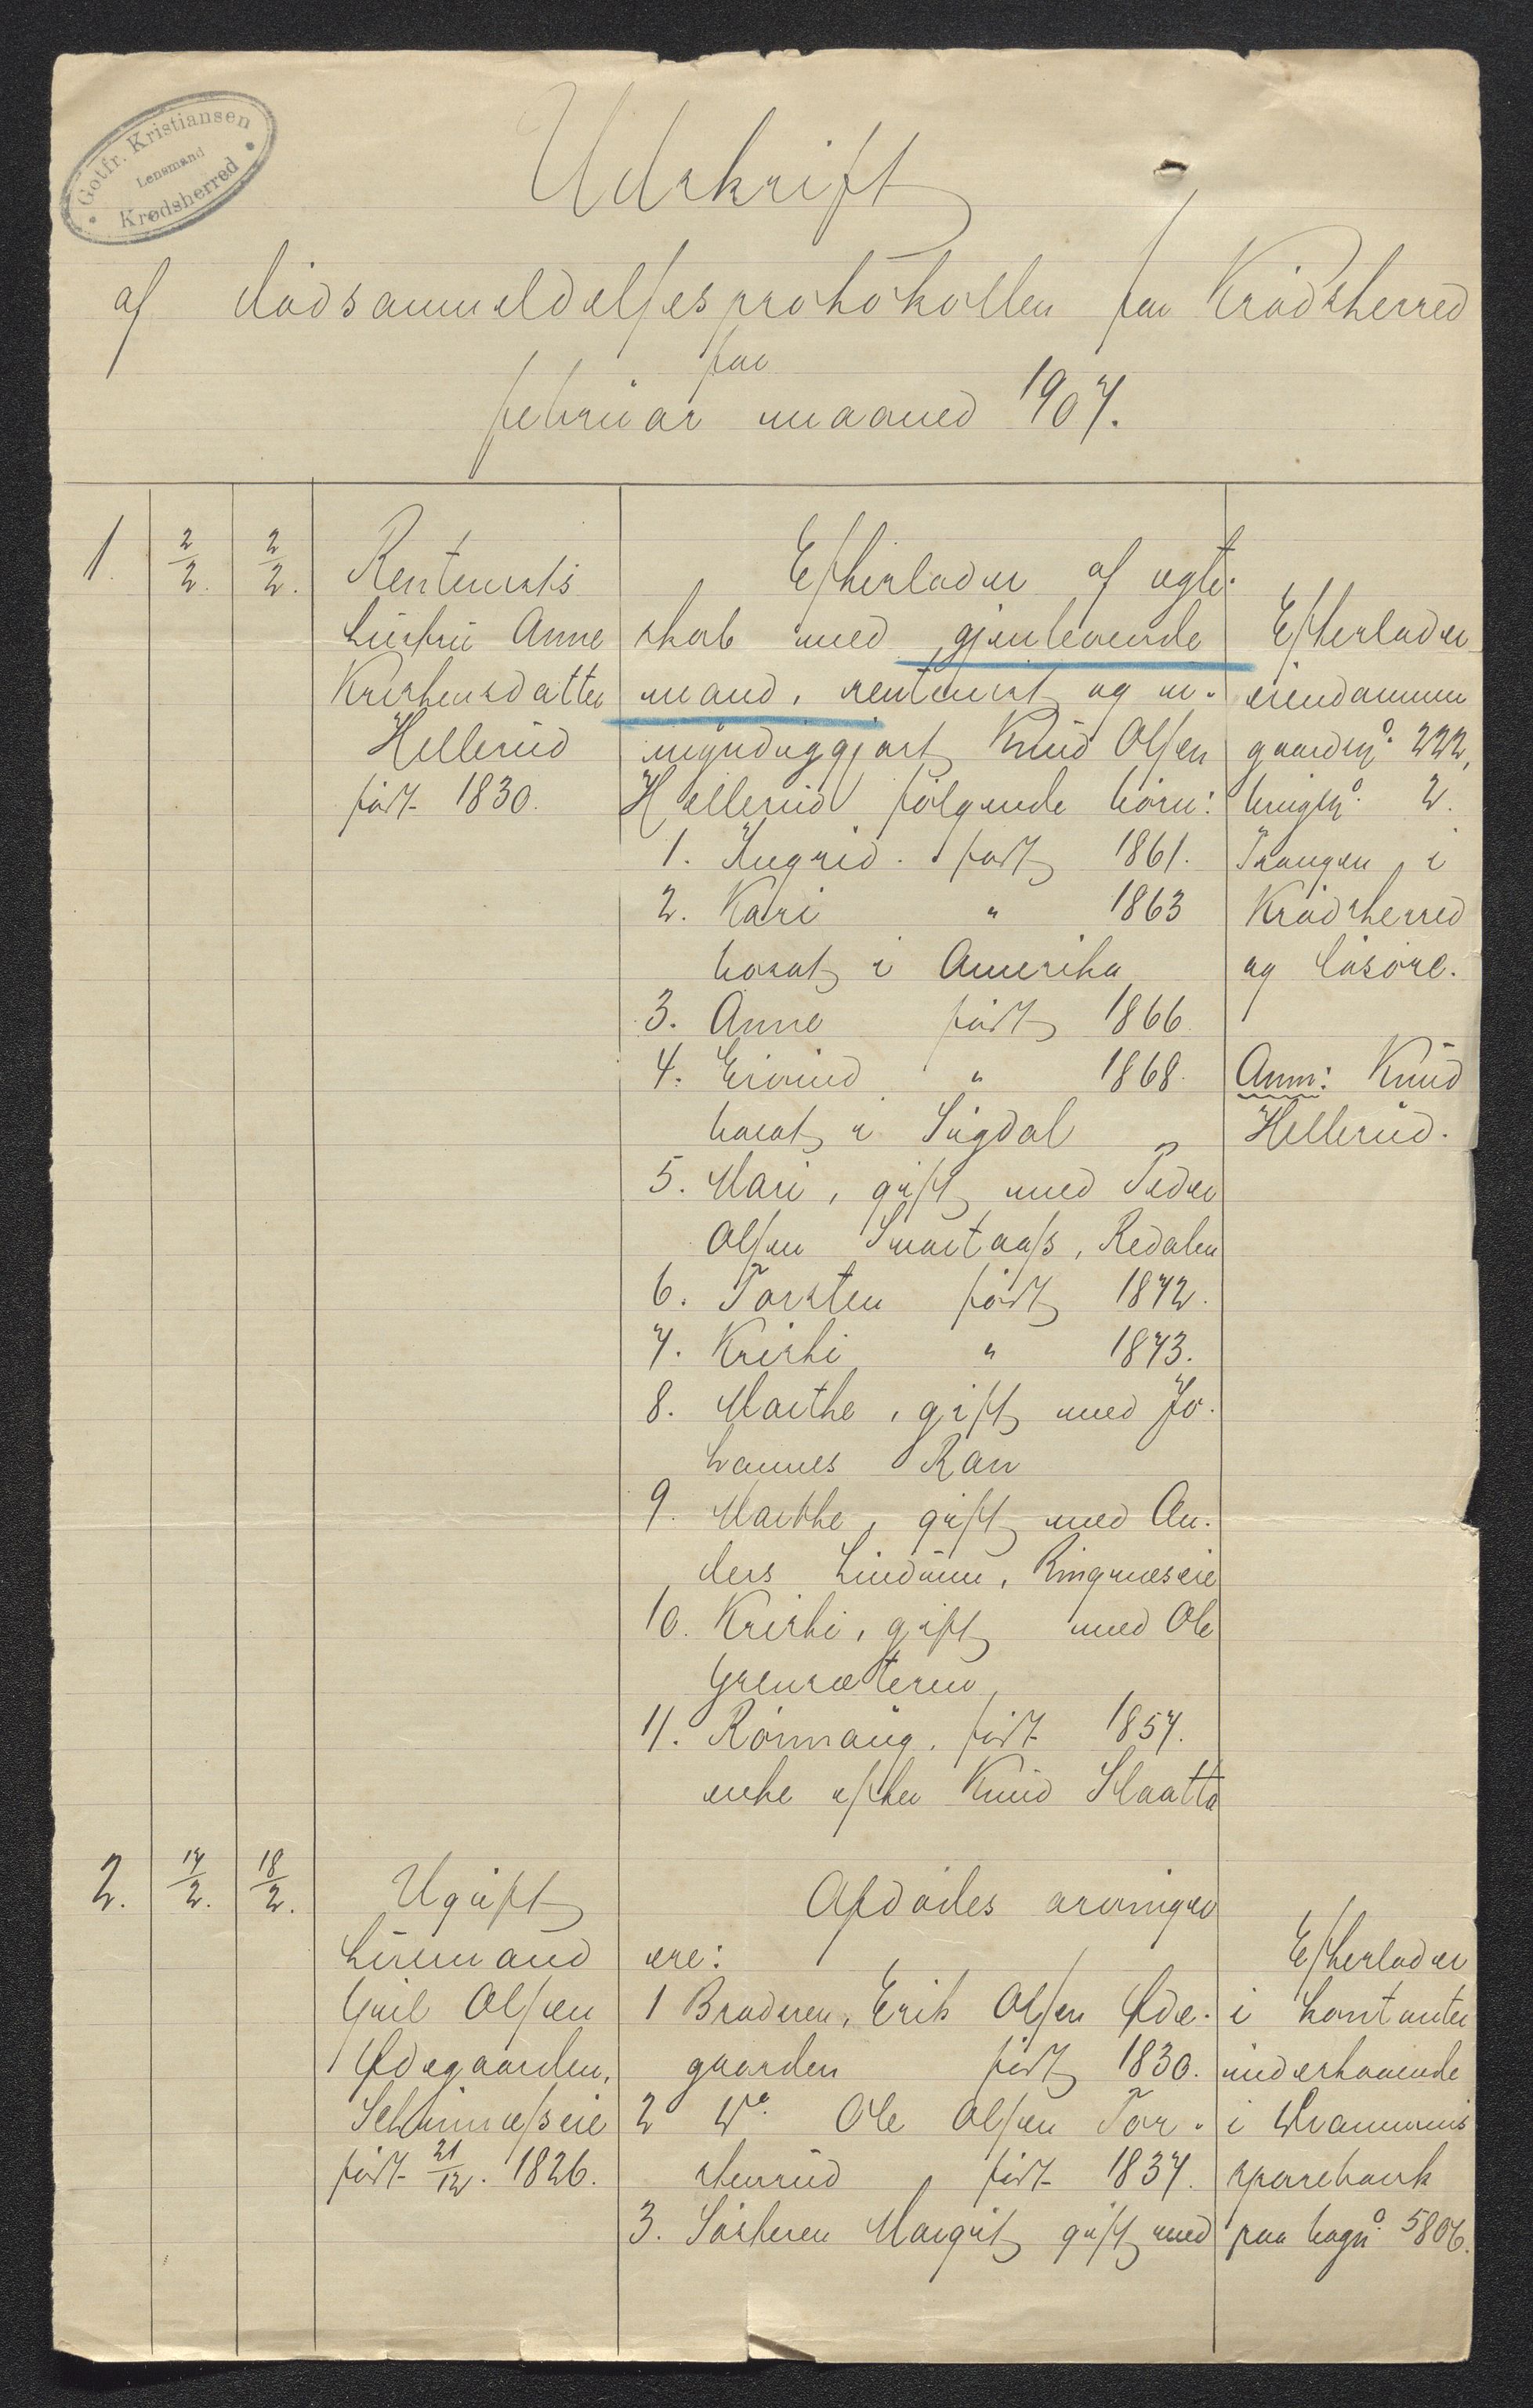 Gotfr. Kristiansen
Lensmand
Krødsherred
Udskrift
af dødsanmeldelsesprotokollen for Krødsherred
for
februar maaned 1907.
1. 2/2. 2/2.
Rentenists
hustru Anne
Kristensdatter
Hellerud
født 1830.
Efterlader af ægte-
skab med gjenlevende
mand, rentenist og u-
myndiggjort Knud Olsen
Hellerud følgende børn:
1. Ingrid. født 1861.
2. Kari " 1863
bosat i Amerika
3. Anne født 1866.
4. Eivind " 1868.
bosat i Sigdal
5. Mari, gift med Peder
Olsen Svartaas, Redalen
6. Torsten født 1872.
7. Kristi " 1873.
8. Marthe, gift med Jo-
hannes Rau
9. Marthe, gift med An-
ders Lindum, Ringneseie
10. Kristi, gift med Ole
Grensæteren
11. Rønnaug, født 1857.
enke efter Knud Slaatta
Efterlader
eiendommen
gaardsno. 222,
brugsno. 2.
Trangen i
Krødsherred
og løsøre.
Anm: Knud
Hellerud.
2. 17/2. 18/2.
Ugift
husmand
Guil Olsen
Ødegaarden,
født 21/12. 1826.
Afdødes arvinger
ere:
1 Broderen, Erik Olsen Øde-
gaarden født 1830.
2 Do. Ole Olsen Tor-
stenrud født 1837.
3. Søsteren Margit gift med
Efterlader
i kontanter
indestaaende
i Drammens
sparebank
paa bog no. 5806.